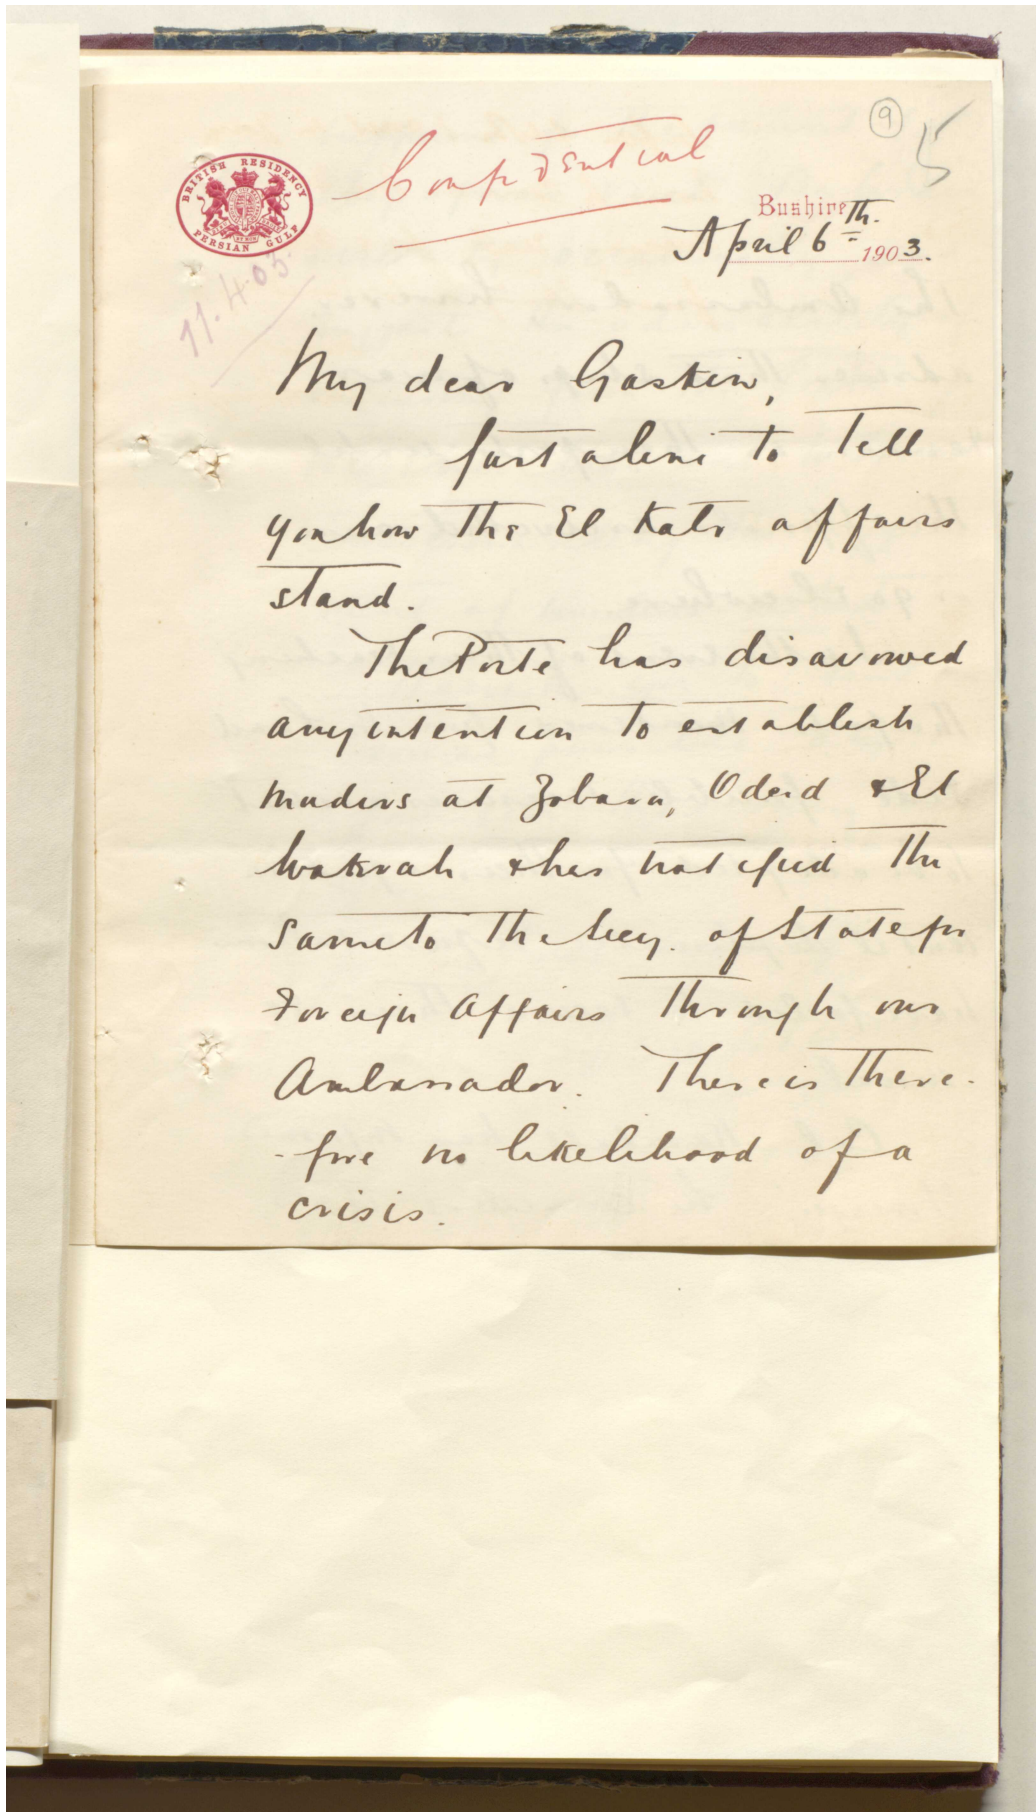 9
5
BRITISH RESIDENCY
PERSIAN GULF
Confidential
Bushire
April 6th. 1903.
11.4.03.
My dear Gaskin,
Just a line to tell
you how the El Katr affairs
stand.
The Porte has disavowed
any intention to establish
mudirs at Zobara, Odeid & El
Wakrah & has notified the
same to the Secy. of State for
Foreign Affairs through our
Ambassador. There is there-
-fore no likelihood of a
crisis.